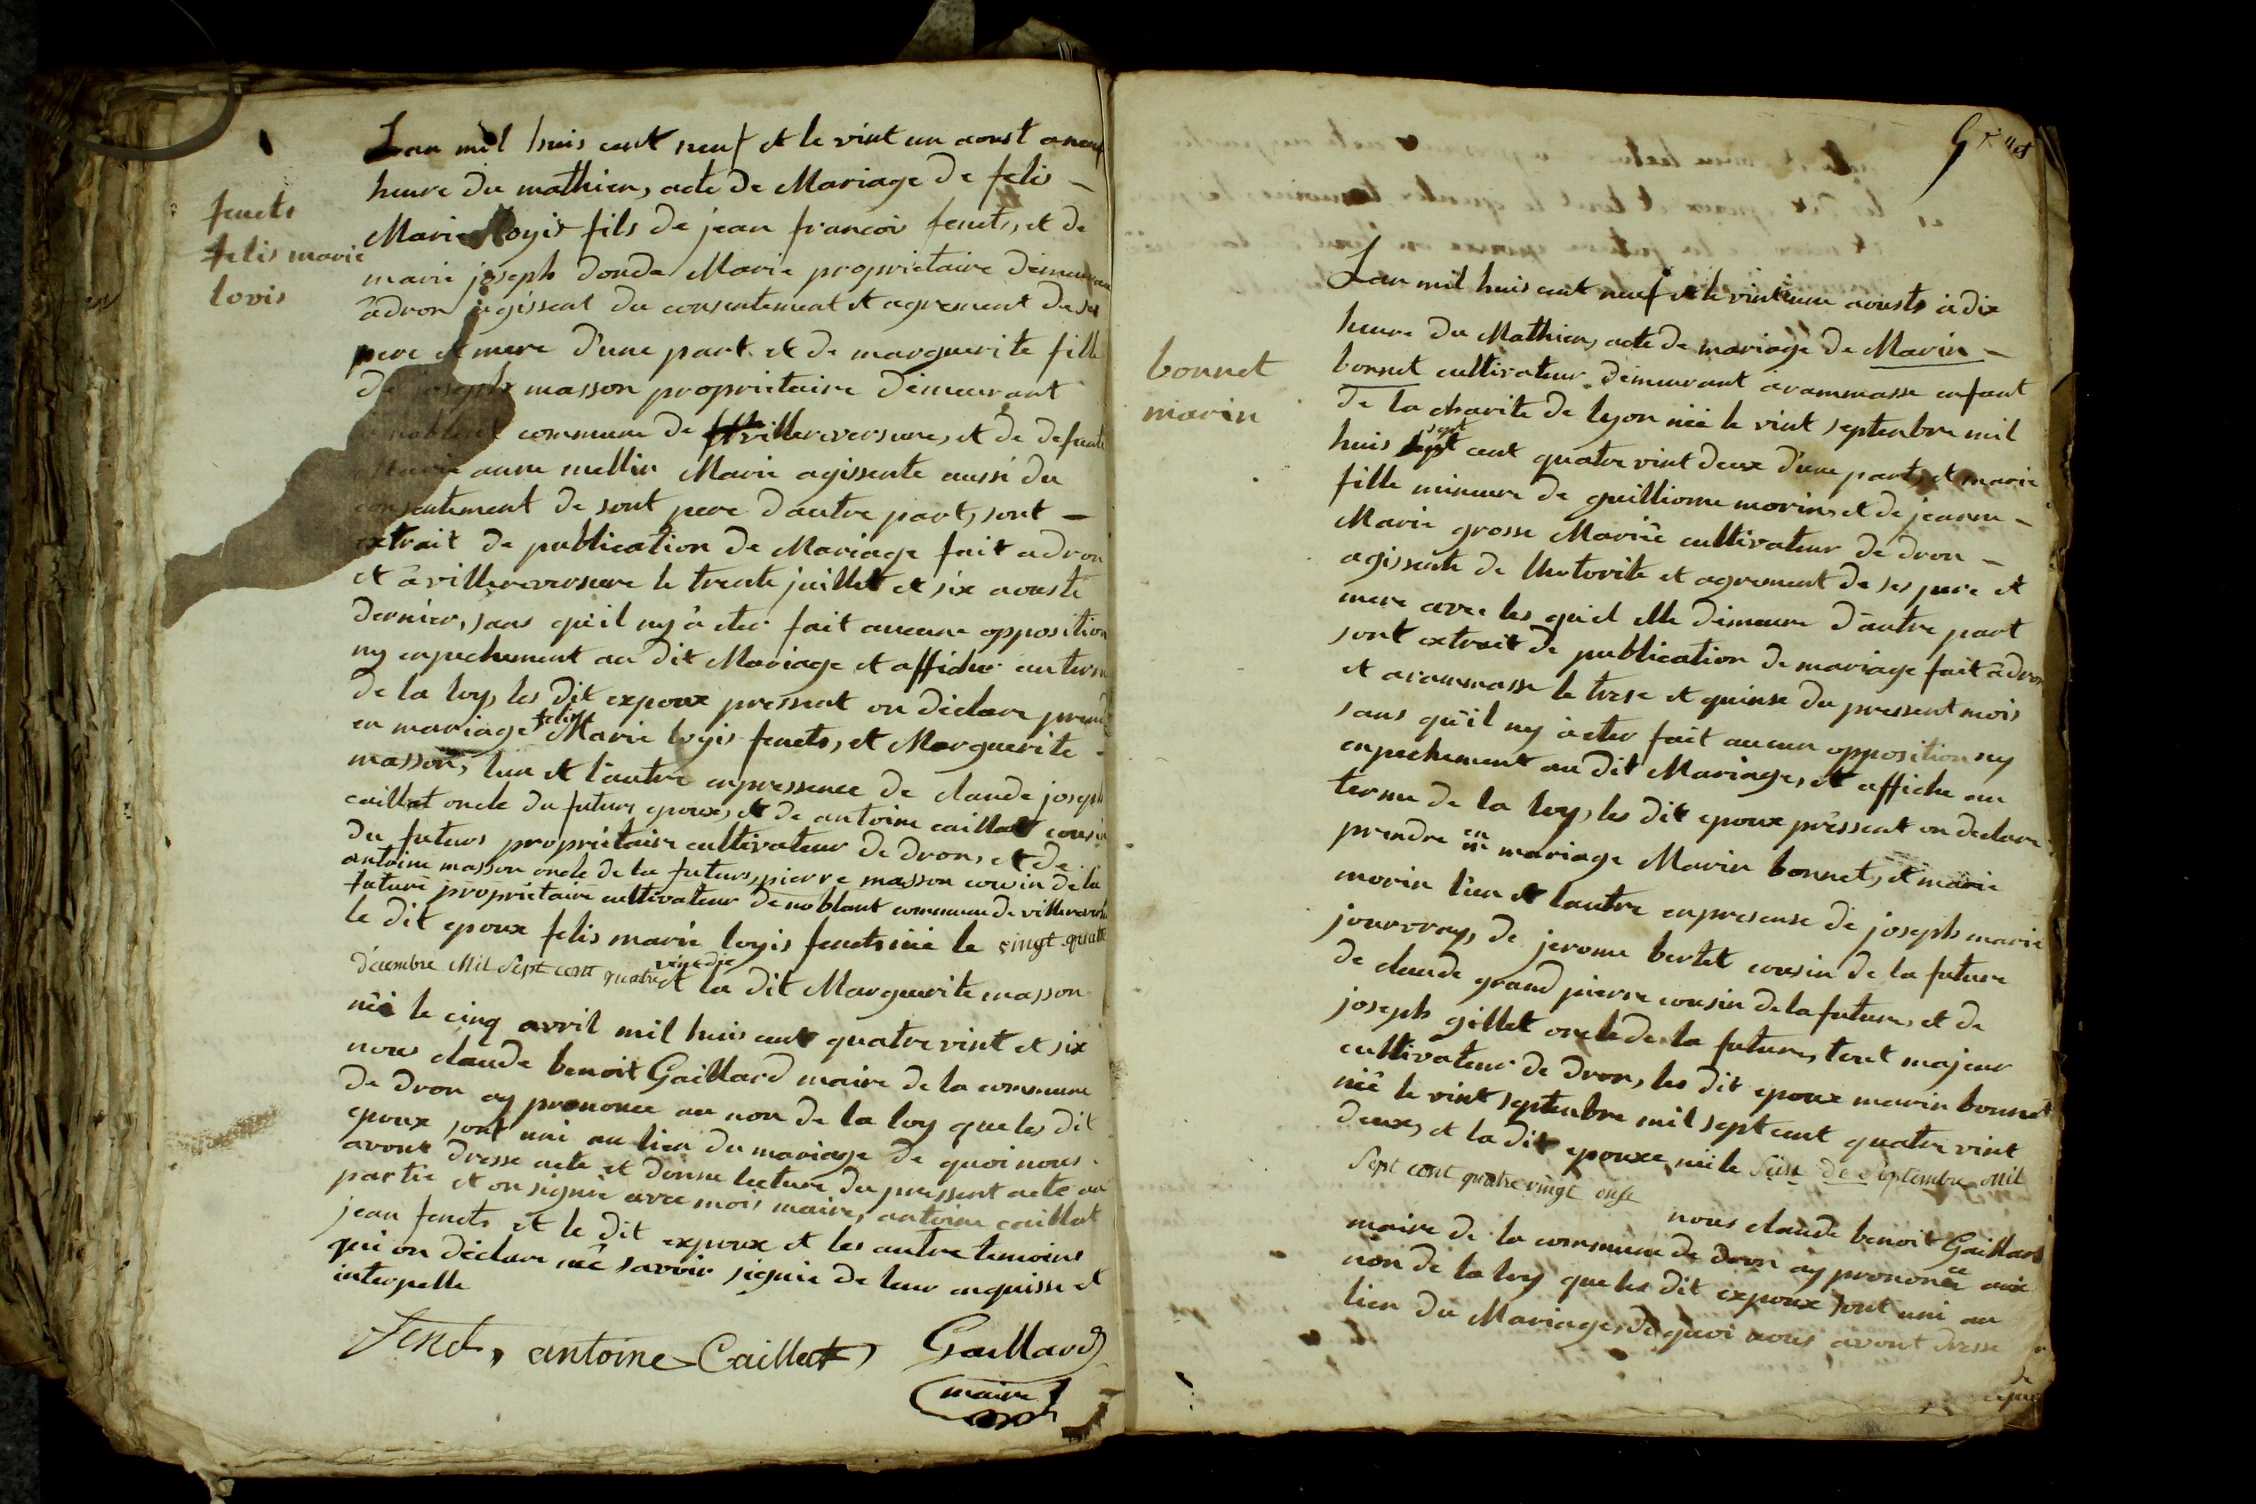 fenets
felis marie
lovis
Lan mil huis cent neuf et le vint un aoust a neuf
heure du mathien, acte de Mariage de felis
Marie loyis fils de jean francois fenets, et de
marie joseph donde Marie proprietaire demeurant
adron agissent du consentement et agrement de ses
pere et mere d'une part et de marguerite fille
de joseph masson proprietaire demeurant
commune de villereversure, et de defunte
anne mellin Marie agissente aussi du
consentement de sont pere dautre part, sont
extrait de publication de Mariage fait adron
et à villereversure le trente juillet et six aouste
dernier, sans qu'il ny à eter fait aucune opposition
ny enpechement au dit Mariage et affiche au terme
de la loy, les dit expoux pressent on declare prendre
en mariage felis Marie loyis fenets, et Marguerite
masson, lun et l'autre enpressence de claude joseph
caillat oncle du future epoux, et de antoine caillat cousin
du futeur proprietaire cultivateur de dron, et de
antoine masson oncle de la future, pierre masson cousin de la
future proprietaire cultivateur de noblant commune de villereversure
le dit epoux felis marie loyis fenets née le vingt quatre
décembre Mil Sept cent quatre vingt dix et la dit Marguerite masson
née le cinq avril mil huis cent quatre vint et six
nous claude benoit Gaillard maire de la commune
de dron ay prononce au non de la loy que les dit
epoux sont uni au lien du mariage de quoi nous
avont dresse acte et donne lecture du pressent acte au
partie et on signie avec mois maire, antoine caillat
jean fenets et le dit expoux et les autre temoins
qui on déclare né savoir signie de leur enquisse et
interpelle
fenet, antoine Caillat, Gaillard
maire
bonnet
marin
Lan mil huis cent neuf et le vintieme aousts à dix
heure du Mathien, acte de mariage de Marin
bonnet cultivateur demeurant arammasse enfant
de la charite de lyon née le vint septenbre mil
huis sept cent quatre vint deux d'une part, et marie
fille mineure de guilliome morin, et de jeanne
Marie grosse Marie cultivateur de dron
agissente de lhotorite et agrement de ses pere et
mere avec les quel elle demeure d'autre part
sont extrait de publication de mariage fait adron
et arammasse le trese et quinse du pressent mois
sans qu'il ny à eter fait aucun opposition ny
enpechement au dit Mariage, et affiche au
terme de la loy, les dit epoux pressent on declare
prendre en mariage Marin bonnet, et marie
morin l'un et lautre enpresense de joseph marie
jourvray, de jerome bertet cousin de la future
de claude grand pierre cousin de la future, et de
joseph gillet oncle de la future, tout majeur
cultivateur de dron, les dit epoux marin bonnet
née le vint septenbre mil sept cent quatre vint
deux, et la dit epouxe née le Seise de Septembre Mil
Sept cent quatre vingt onse
nous claude benoit Gaillard
maire de la commune de dron ay prononce aux
non de la loy que les dit expoux sont uni au
lien du Mariage, de quoi nous avont dresse